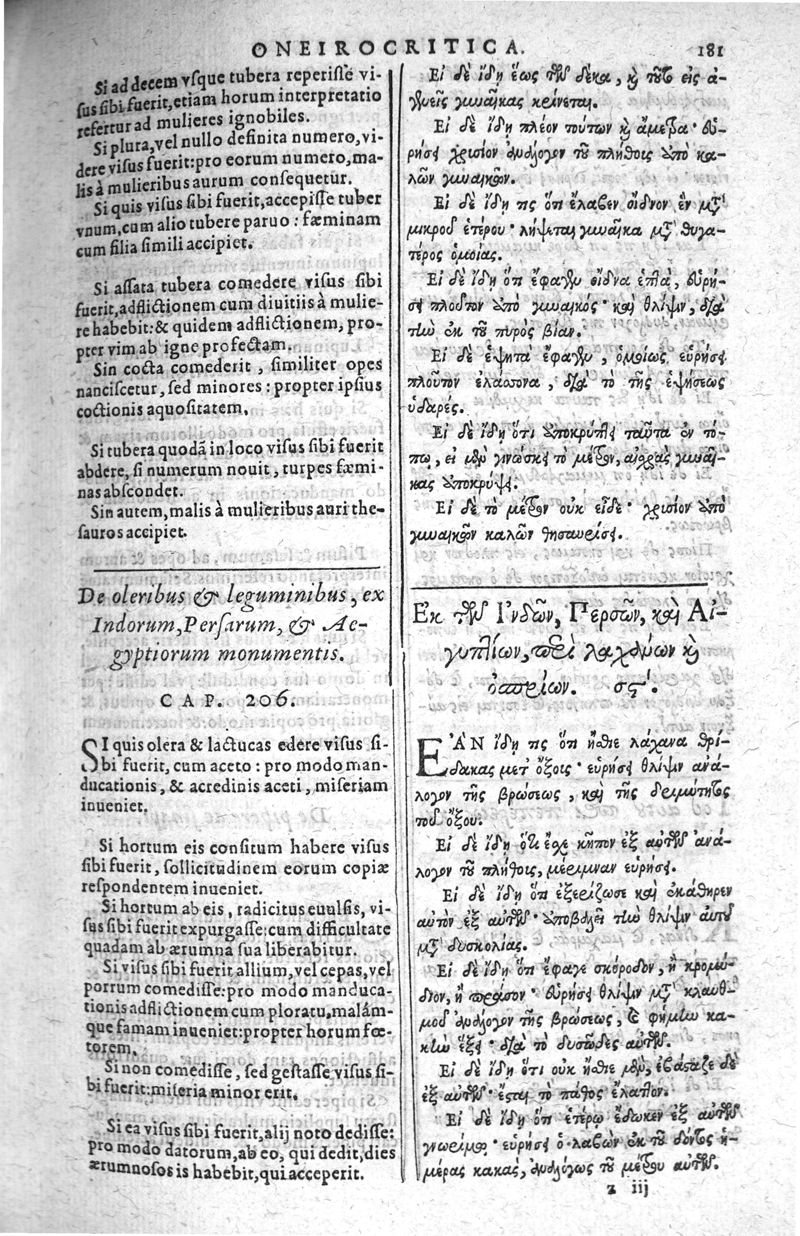 ONEIROCRITICA. 181
Si ad decem vsque tubera reperisse vi-
sus sibi fuerit, etiam horum interpretatio
refertur ad mulieres ignobiles.
Si plura, vel nullo definita numero, vi-
dere visus fuerit: pro eorum numero, ma-
lis à mulieribus aurum consequetur.
Si quis visus sibi fuerit, accepisse tuber
vnum, cum alio tubere paruo: fæminam
cum filia simili accipiet.
Si assata tubera comedere visus sibi
fuerit, adflictionem cum diuitiis à mulie-
re habebit: & quidem adflictionem, pro-
pter vim ab igne profectam.
Sin cocta comederit, similiter opes
nanciscetur, sed minores: propter ipsius
coctionis aquositatem.
Si tubera quodā in loco visus sibi fuerit
abdere, si numerum nouit, turpes fæmi-
nas abscondet.
Sin autem, malis à mulieribus auri the-
sauros accipiet.
De oleribus & leguminibus, ex
Indorum, Persarum, & Ae-
gyptiorum monumentis.
CAP. 206.
SI quis olera & lactucas edere visus si-
bi fuerit, cum aceto: pro modo man-
ducationis, & acredinis aceti, miseriam
inueniet.
Si hortum eis consitum habere visus
sibi fuerit, sollicitudinem eorum copiæ
respondentem inueniet.
Si hortum ab eis, radicitus euulsis, vi-
sus sibi fuerit expurgasse: cum difficultate
quadam ab ærumna sua liberabitur.
Si visus sibi fuerit allium, vel cepas, vel
porrum comedisse: pro modo manduca-
tionis adflictionem cum ploratu, malám-
que famam inueniet: propter horum fœ-
torem.
Si non comedisse, sed gestasse visus si-
bi fuerit: miseria minor erit.
Si ea visus sibi fuerit, alij noto dedisse:
pro modo datorum, ab eo, qui dedit, dies
ærumnosos is habebit, qui acceperit.
Εἰ δὲ ἴδῃ ἕως τῶν δέκα, καὶ τοῦτο εἰς ἀ-
γενεῖς γυναῖκας κρίνεται.
Εἰ δὲ ἴδῃ πλέον τούτων καὶ ἄμετρα· εὑ-
ρήσει χρυσίον ἀνάλογον τοῦ πλήθους ἀπὸ κα-
λῶν γυναικῶν.
Εἰ δὲ ἴδῃ τις ὅτι ἔλαβεν οἶδνον ἓν μετὰ
μικροῦ ἑτέρου· λήψεται γυναῖκα μετὰ θυγα-
τέρος ὁμοίας.
Εἰ δὲ ἴδῃ ὅτι ἔφαγεν οἶδνα ὀπτὰ, εὑρή-
σει πλοῦτον ἀπὸ γυναικός· καὶ θλίψιν, διὰ
τὴν ἐκ τοῦ πυρὸς βίαν.
Εἰ δὲ ἑψητὰ ἔφαγεν, ὁμοίως εὑρήσει
πλοῦτον ἐλάσσονα, διὰ τὸ τῆς ἑψήσεως
ὑδαρές.
Εἰ δὲ ἴδῃ ὅτι ἀποκρύπτει ταῦτα ἐν τό-
πῳ, εἰ μὲν γινώσκει τὸ μέτρον, αἰσχρὰς γυναῖ-
κας ἀποκρύψει.
Εἰ δὲ τὸ μέτρον οὐκ εἶδε· χρυσίον ἀπὸ
γυναικῶν καλῶν θησαυρίσει.
Ἐκ τῶν Ἰνδῶν, Περσῶν, καὶ Αἰ-
γυπτίων, περὶ λαχάνων καὶ
ὀσπρίων. σϛʹ.
ΕΑΝ ἴδῃ τις ὅτι ἤσθιε λάχανα θρί-
δακας μετ᾽ ὄξους· εὑρήσει θλίψιν ἀνά-
λογον τῆς βρώσεως, καὶ τῆς δριμύτητος
τοῦ ὄξους.
Εἰ δὲ ἴδῃ ὅτι ἔσχε κῆπον ἐξ αὐτῶν ἀνά-
λογον τοῦ πλήθους, μέριμναν εὑρήσει.
Εἰ δὲ ἴδῃ ὅτι ἐξερίζωσε καὶ ἐκάθηρεν
αὐτὸν ἐξ αὐτῶν· ἀποβαλεῖ τὴν θλίψιν αὐτοῦ
μετὰ δυσκολίας.
Εἰ δὲ ἴδῃ ὅτι ἔφαγε σκόροδον, ἢ κρομμύ-
διον, ἢ πράσον· εὑρήσει θλίψιν μετὰ κλαυθ-
μοῦ ἀνάλογον τῆς βρώσεως, καὶ φήμην κα-
κὴν ἕξει· διὰ τὸ δυσῶδες αὐτῶν.
Εἰ δὲ ἴδῃ ὅτι οὐκ ἤσθιε μὲν, ἐβάσταζε δὲ
ἐξ αὐτῶν· ἔσται τὸ πάθος ἔλαττον.
Εἰ δὲ ἴδῃ ὅτι ἑτέρῳ ἔδωκεν ἐξ αὐτῶν
γνωρίμῳ· εὑρήσει ὁ λαβὼν ἐκ τοῦ δόντος ἡ-
μέρας κακὰς, ἀναλόγως τοῦ μέτρου αὐτῶν.
z iij